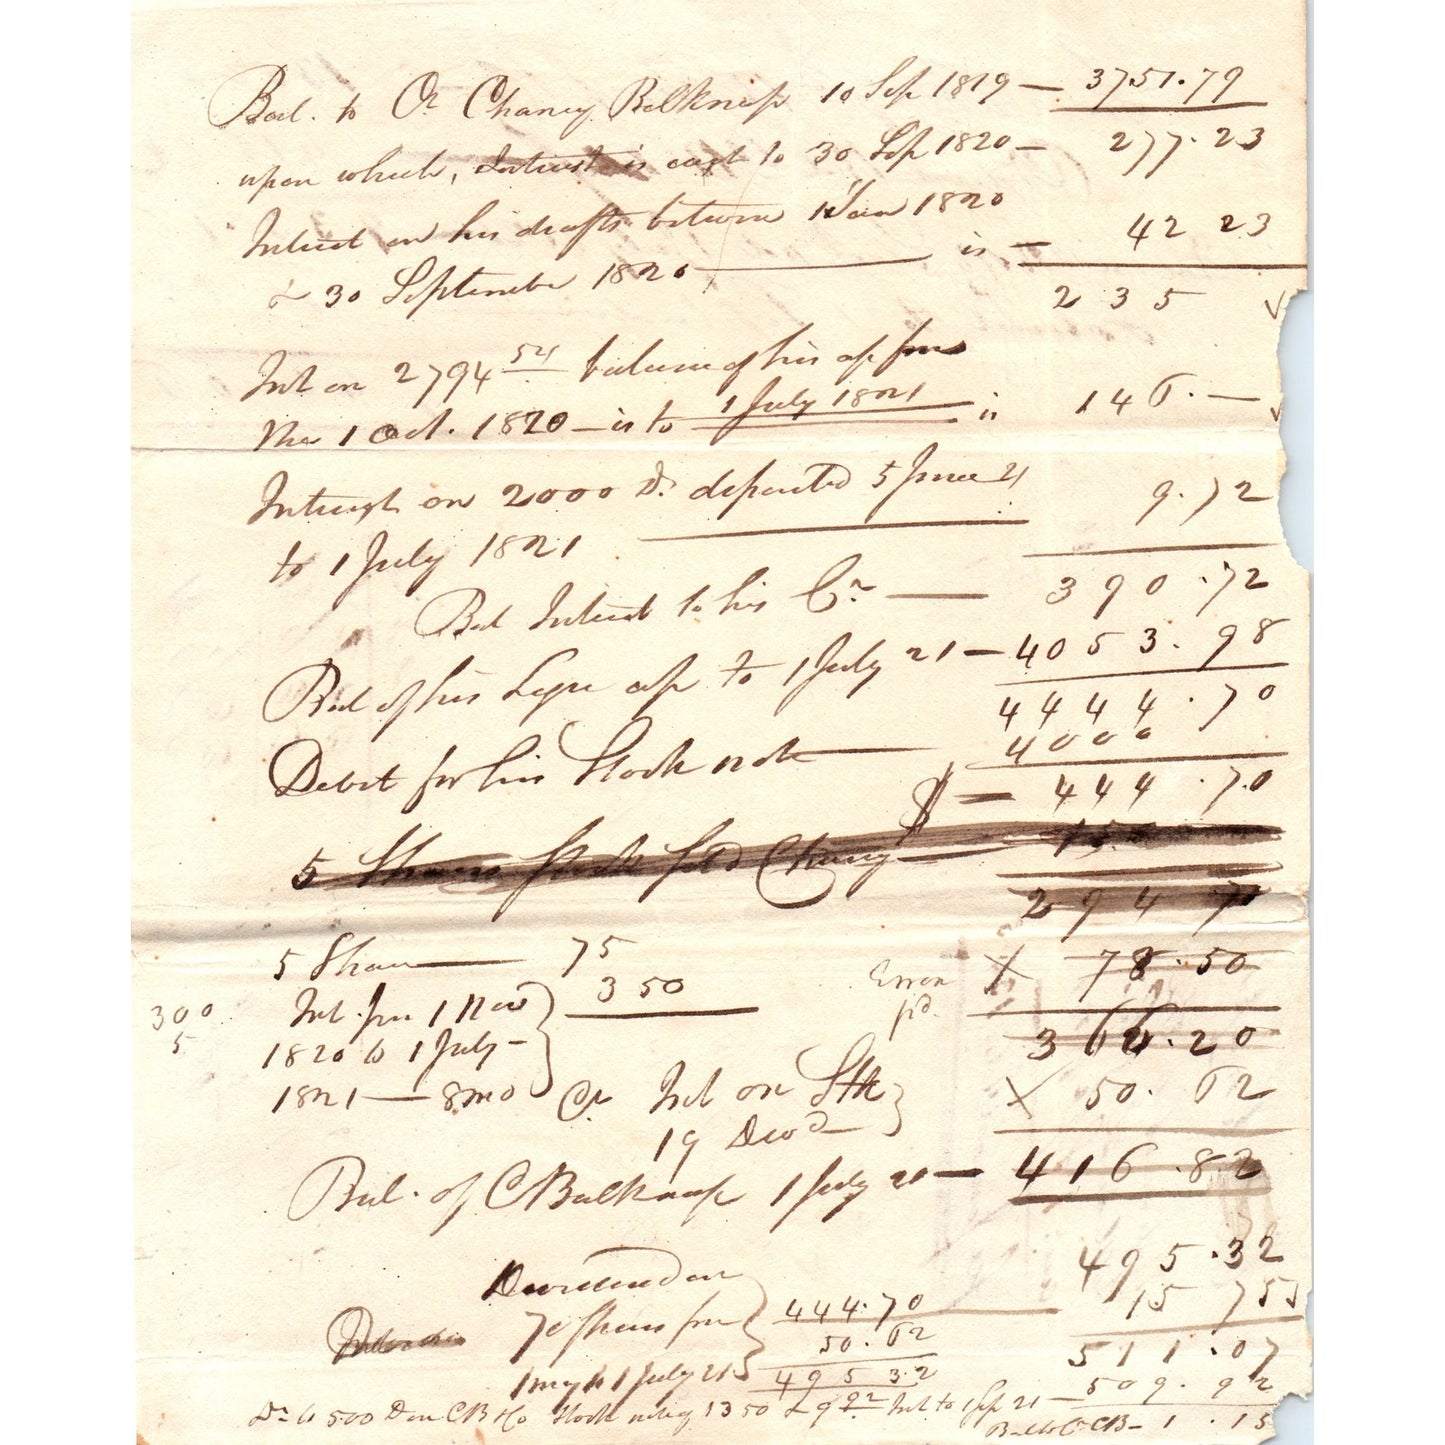 Bal. to Cr Chancy Belknap 10 Sep 1819 — 3751.79
upon which, Interest is cast to 30 Sep 1820 — 277.23
Interest on his drafts between 1 Jan 1820
& 30 September 1820 — is — 42 23
2 3 5
Int on 2794 54 balance of his a/c from
the 1 Oct. 1820 — is to 1 July 1821 is 146. —
Interest on 2000 D. deposited 5 June 21
to 1 July 1821 9.72
Bal Interest to his Cr — 390.72
Bal of his a/c to 1 July 21 — 4053.98
4444.70
Debit for his Stock note — 4000
$ — 444.70
5 Shares Stock Sold Chancy
294 70
5 Shares — 75 X 78.50
Int from 1 Nov 350 Error
300 1820 to 1 July — 364.20
5 1821 — 8 mo Cr Int on Stk X 50.62
19 Dec
Bal. of C Belknap 1 July 21 — 416.82
495.32
Dividend on
70 Shares from 444.70 15 755
50.62 511.07
1 May to 1 July 21 495 32
Dr to 500 D on CB Stock note 1350 & 9 92 Int to 1 Sep 21 — 509.92
Bal to Cr CB — 1.15